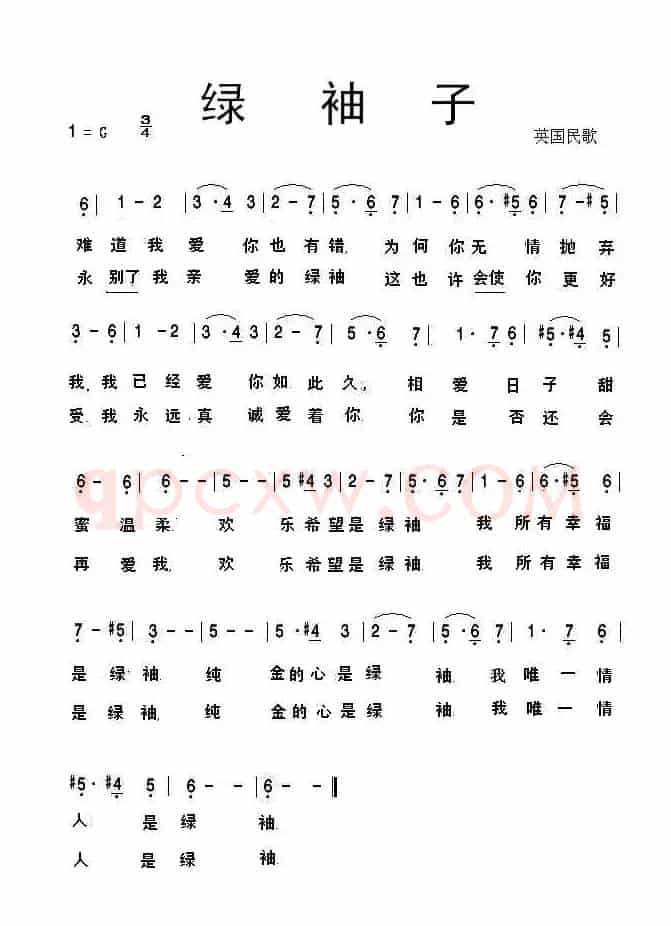 绿 袖 子
1 = G 3/4
英国民歌
6 | 1 - 2 | 3 · 4 3 | 2 - 7 | 5 · 6 7 | 1 - 6 | 6 · #5 6 | 7 - #5 |
难 道 我 爱 你 也 有 错, 为 何 你 无 情 抛 弃
永 别了 我 亲 爱 的 绿 袖 这 也 许 会使 你 更 好
3 - 6 | 1 - 2 | 3 · 4 3 | 2 - 7 | 5 · 6 7 | 1 · 7 6 | #5 · #4 5 |
我, 我 已 经 爱 你 如 此 久, 相 爱 日 子 甜
受. 我 永 远 真 诚 爱 着 你. 你 是 否 还 会
6 - 6 | 6 - - | 5 - - | 5 #4 3 | 2 - 7 | 5 · 6 7 | 1 - 6 | 6 · #5 6 |
qpcxw.COM
蜜 温 柔. 欢 乐 希 望 是 绿 袖 我 所 有 幸 福
再 爱 我, 欢 乐 希 望 是 绿 袖. 我 所 有 幸 福
7 - #5 | 3 - - | 5 - - | 5 · #4 3 | 2 - 7 | 5 · 6 7 | 1 · 7 6 |
是 绿 袖. 纯 金 的 心 是 绿 袖. 我 唯 一 情
是 绿 袖, 纯 金 的 心 是 绿 袖. 我 唯 一 情
#5 · #4 5 | 6 - - | 6 - - ‖
人 是 绿 袖.
人 是 绿 袖.